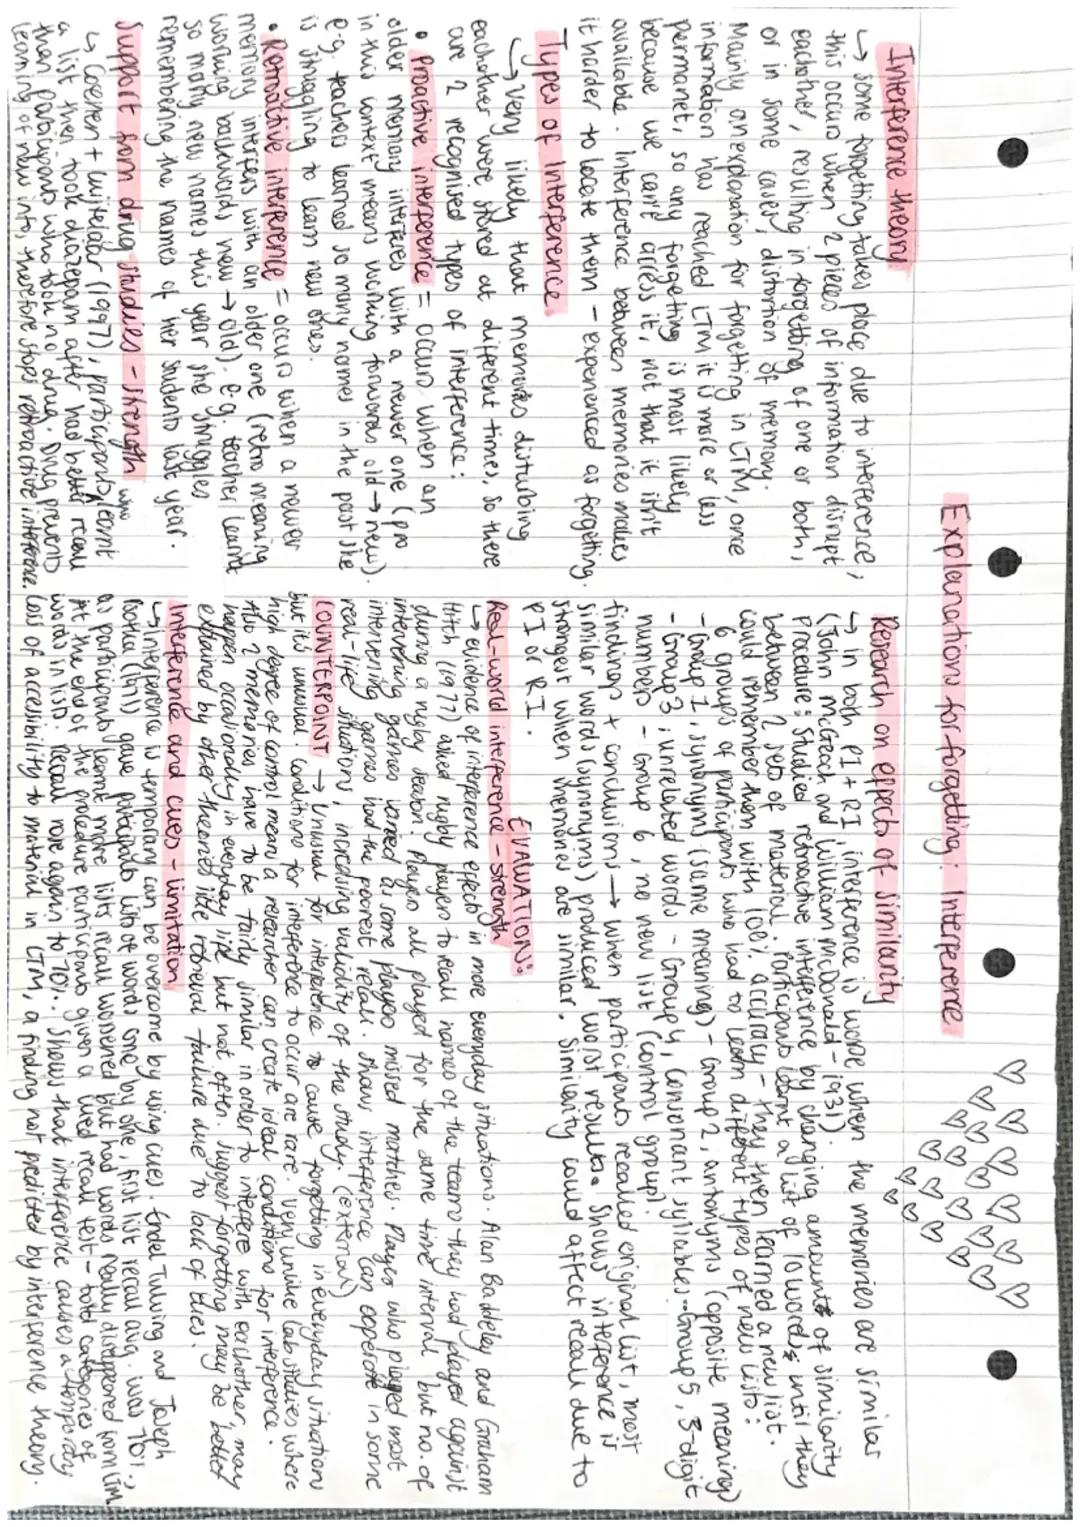 Explanations for forgetting: Interference
Interference theory
↳ some forgetting takes place due to interference,
this occurs when 2 pieces of information disrupt
eachother, resulting in forgetting of one or both,
or in some cases, distortion of memory.
Mainly an explanation for forgetting in LTM, once
information has reached LTM it is more or less
permanet, so any forgetting is most likely
because we can't access it, not that it isn't
available. Interference between memories makes
it harder to locate them - experienced as forgetting.
Types of interference
↳ very likely that memories disturbing
eachother were stored at different times, so there
are 2 recognised types of interference:
• Proactive interference = occurs when an
older memory interferes with a newer one (pro
in this context means working forwards, old → new).
e.g. teachers learned so many names in the past she
is struggling to learn new ones.
• Retroactive interference = occurs when a newer
memory interferes with an older one (retro meaning
working backwards, new → old). e.g. teacher learnt
so many new names this year she struggles
remembering the names of her students last year.
Support from drug studies - strength
↳ Coenen + Luijtelaar (1997), participants who learnt
a list then took diazepam after had better recall
than participants who took no drug. Drug prevents
learning of new info, therefore stops retroactive interference.
Research on effects of similarity
↳ in both PI + RI, interference is worse when the memories are similar
(John McGeoch and William McDonald - 1931).
Procedure: Studied retroactive interference by changing amounts of similarity
between 2 sets of material. Participants learnt a list of 10 words until they
could remember them with 100% accuracy - they then learned a new list.
6 groups of participants who had to learn different types of new lists:
- Group 1, synonyms (same meaning) - Group 2, antonyms (opposite meaning)
- Group 3, unrelated words - Group 4, consonant syllables - Group 5, 3-digit
numbers - Group 6, no new list (control group).
findings + conclusions → when participants recalled original list, most
similar words (synonyms) produced worst results. Shows interference is
strongest when memories are similar. Similarity could affect recall due to
PI or RI.
EVALUATION:
Real-world interference - strength
↳ evidence of interference effects in more everyday situations. Alan Baddeley and Graham
Hitch (1977) asked rugby players to recall names of the teams they had played against
during a rugby season. Players all played for the same time interval but no. of
intervening games varied as some players missed matches. Players who played most
intervening games had the poorest recall. Shows interference can operate in some
real-life situations, increasing validity of the study. (external)
COUNTERPOINT → Unusual for interference to cause forgetting in everyday situations
but it is unusual. conditions for interference to occur are rare. Very unlike lab studies where
high degree of control means a researcher can create ideal conditions for interference.
Also 2 memories have to be fairly similar in order to interfere with eachother, may
happen occasionally in everyday life but not often. Suggest forgetting may be better
explained by other theories like retrieval failure due to lack of cues.
Interference and cues - limitation
↳ interference is temporary can be overcome by using cues. Endel Tulving and Joseph
Psotka (1971) gave participants lists of words one by one, first list recall avg. was 70%,
as participants learnt more lists recall worsened but had words really disappeared from LTM,
at the end of the procedure participants given a cued recall test - told categories of
words in lists. Recall rose again to 70%. Shows that interference causes a temporary
loss of accessibility to material in LTM, a finding not predicted by interference theory.